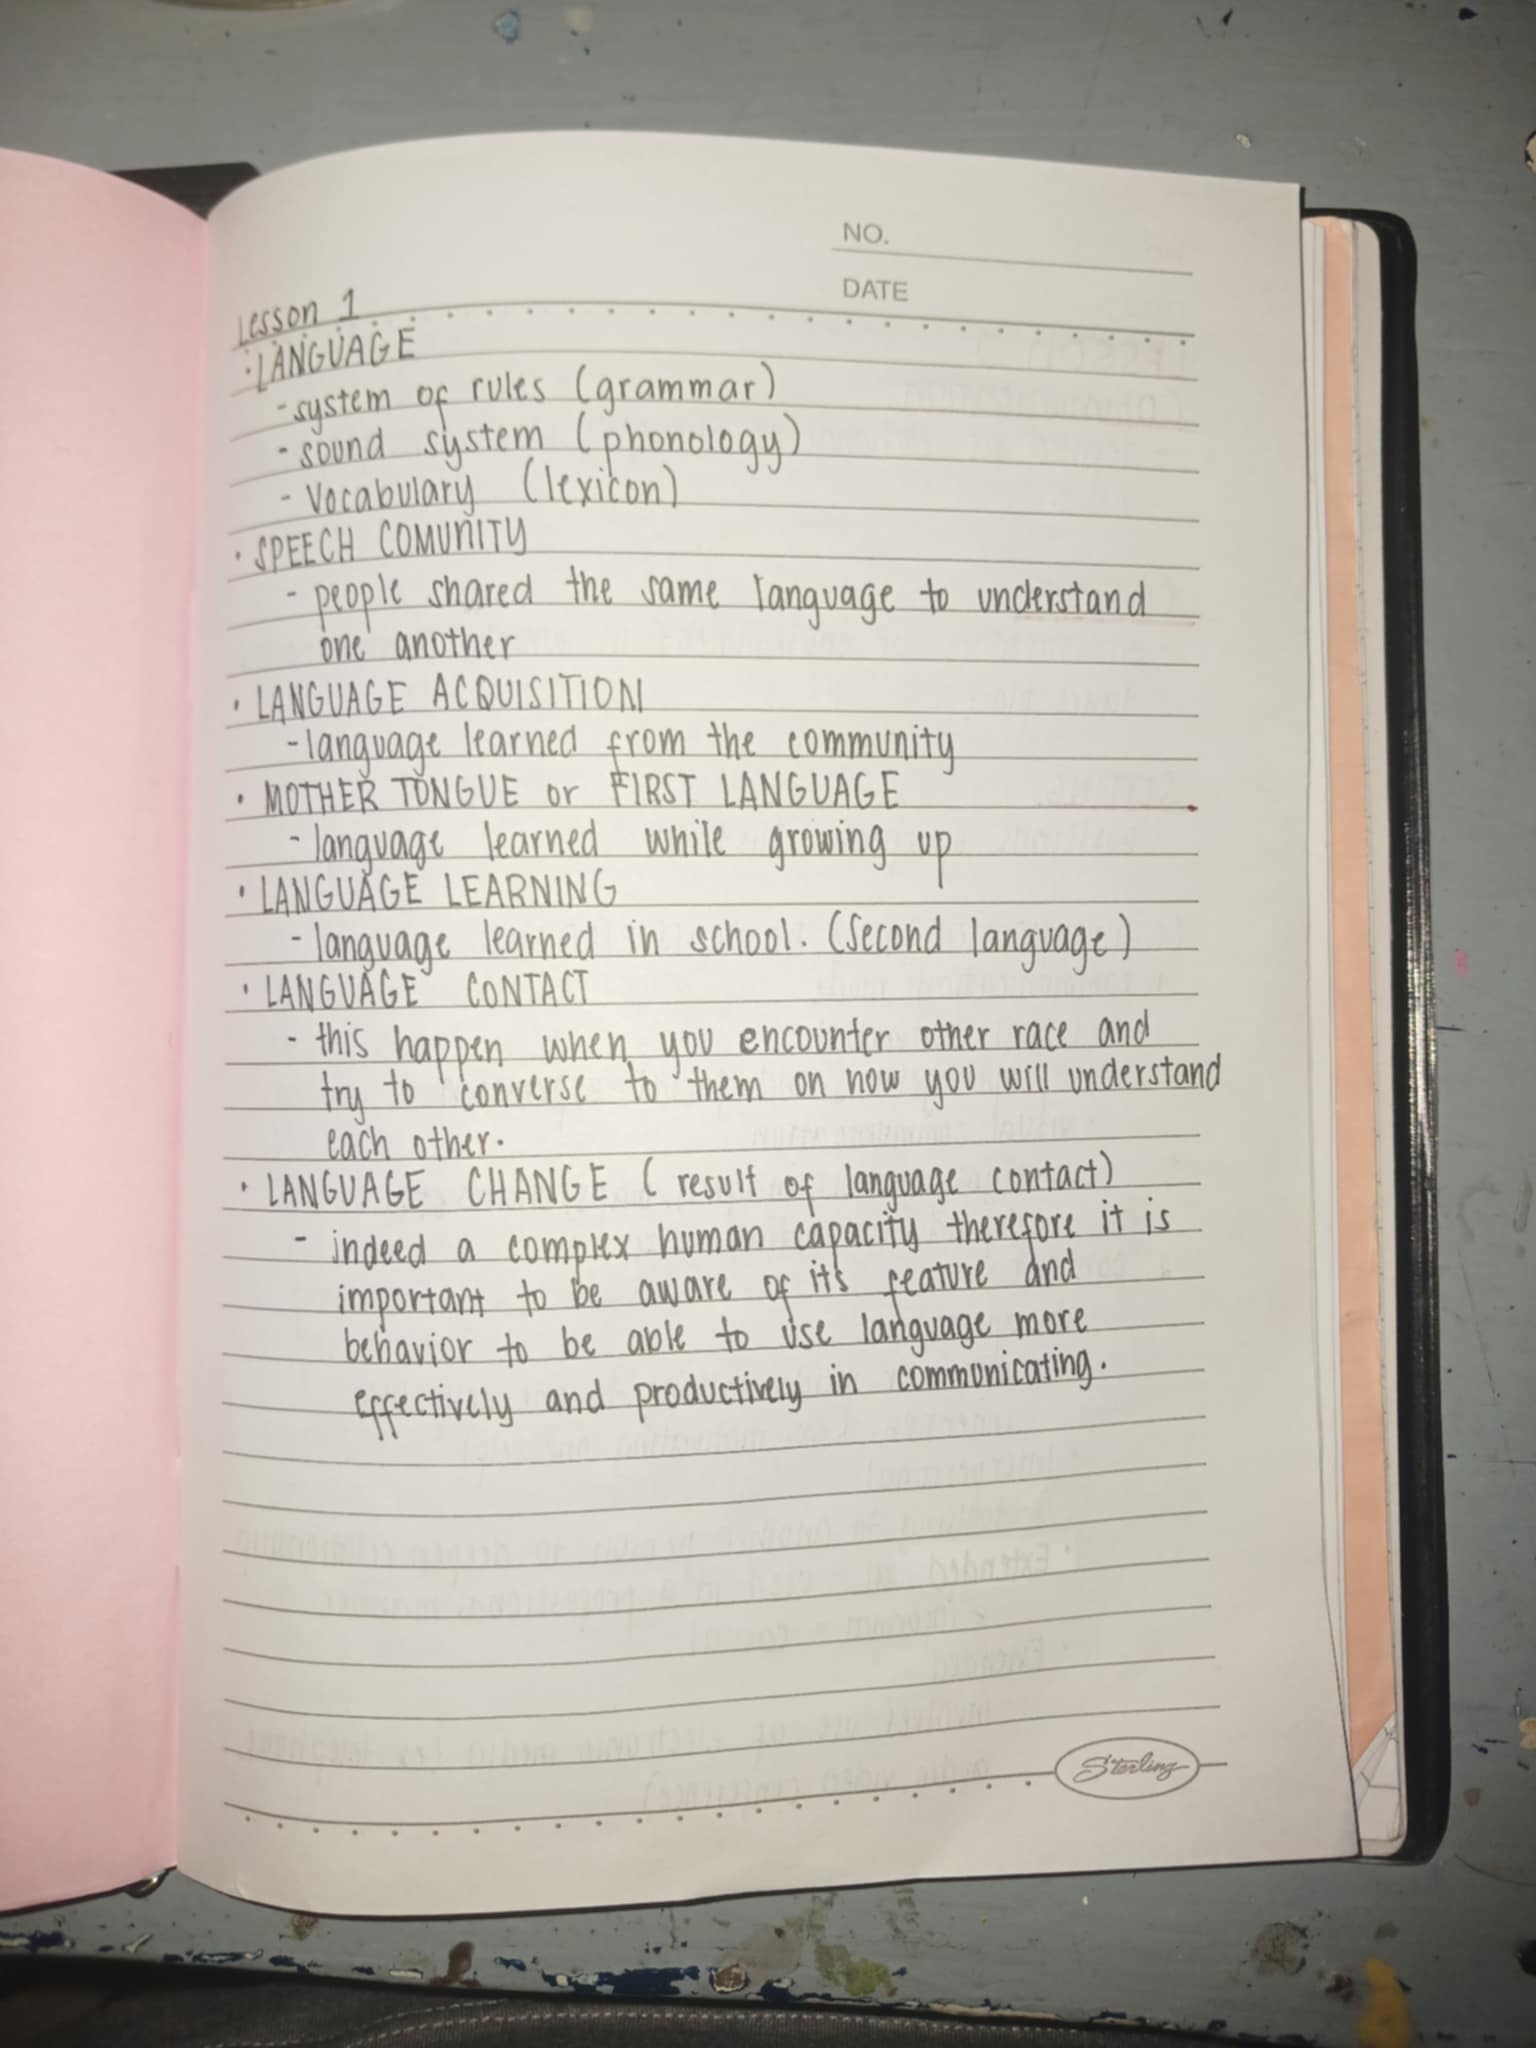 NO.
DATE
Lesson 1
· LANGUAGE
- system of rules (grammar)
- sound system (phonology)
- Vocabulary (lexicon)
· SPEECH COMUNITY
- people shared the same language to understand
one another
· LANGUAGE ACQUISITION
- language learned from the community
· MOTHER TONGUE or FIRST LANGUAGE
- language learned while growing up
· LANGUAGE LEARNING
- language learned in school. (Second language)
· LANGUAGE CONTACT
- this happen when you encounter other race and
try to converse to them on how you will understand
each other.
· LANGUAGE CHANGE (result of language contact)
- indeed a complex human capacity therefore it is
important to be aware of its feature and
behavior to be able to use language more
effectively and productively in communicating.
Sterling